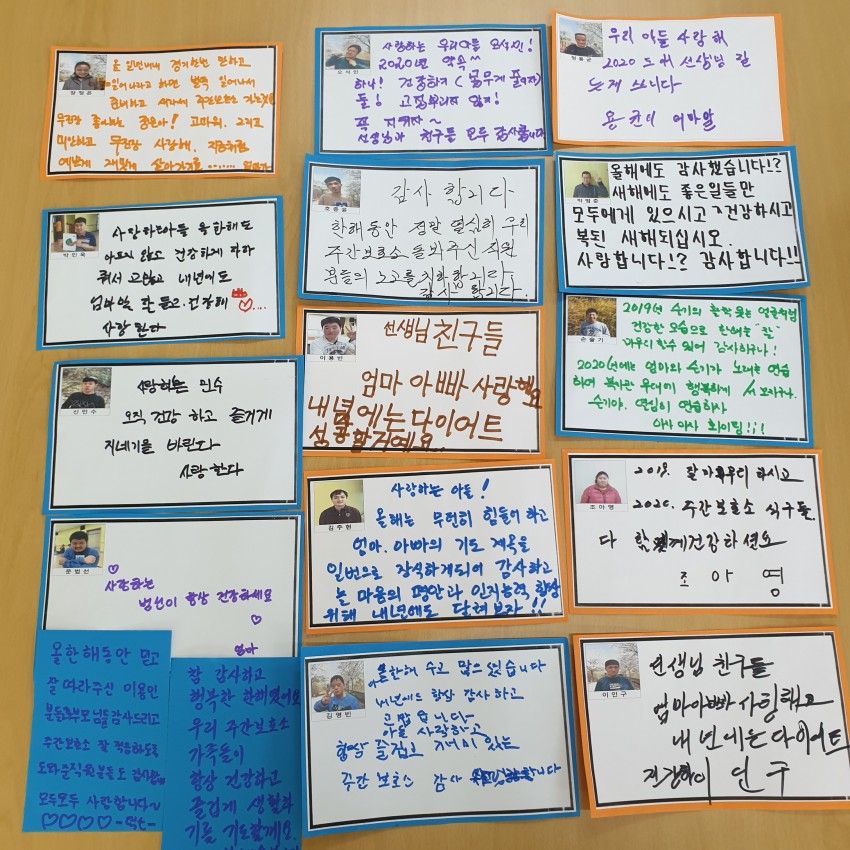 올 일년내내 경기한번 안하고
일어나라고 하면 벌떡 일어나서
준비하고 씩씩하게 주간보호소 가는
무진장 좋아하는 종은아! 고마워. 그리고
미안하고 무진장 사랑해. 지금처럼
예쁘게 재밌게 살아가자
사랑하는 우리아들
2020년 약속^^
하나! 건강하기(몸무게 줄이자)
둘! 고집부리지 않기!
꼭 지키자~
선생님과 친구들 모두 감사합니다
우리 아들 사랑해
2020 도 선생님 말
듣게 쓰니다
용균이 엄마
사랑하는아들 올 한해도
아프지 않고 건강하게 자라
줘서 고맙고 내년에도
엄마 말 잘 듣고 건강해
사랑 한다
박민욱
감사 합니다
한해동안 정말 열심히 우리
주간보호소 돌봐주신 직원
분들의 노고를 치하합니다.
감사 합니다.
올해에도 감사했습니다!?
새해에도 좋은일들만
모두에게 있으시고 건강하시고
복된 새해되십시오.
사랑합니다!? 감사합니다!!
사랑하는 민수
오직 건강 하고 즐거게
지네기를 바란다
사랑 한다
신민수
선생님 친구들
엄마 아빠 사랑해요
내년에는 다이어트
성공할거예요.
이용빈
2019년 슬기의 활짝 웃는 얼굴처럼
건강한 모습으로 한해를 "잘"
마무리 할수 있어 감사하구나!
2020년에는 엄마와 슬기가 노래는 연습
하며 복지관 무대에 행복하게 서 보자구나.
슬기야. 열심히 연습하자
아자 아자 화이팅!!!
손슬기
사랑하는
범선이 항상 건강하세요
엄마
문범선
사랑하는 아들!
올해는 무던히 힘들어 하고
엄마. 아빠의 기도 제목을
일번으로 장식하게되어 감사하고
늘 마음의 평안과 인지능력 향상
위해 내년에도 달려보자!!
김주현
2019. 잘 마무리 하시고
2020. 주간보호소 식구들.
다 함께 건강하셔요
조 아 영
조아영
올한해동안 믿고
잘 따라주신 이용인
분들과 부모님들 감사드리고
주간보호소 잘 적응하도록
도와준 직원분들도 감사해요
모두모두 사랑합니다~
참 감사하고
행복한 한해였어요
우리 주간보호소
가족들이
항상 건강하고
즐겁게 생활하
기를 기도할게요.
올한해 수고 많으셨습니다
내년에도 항상 감사 하고
고맙습니다
아들 사랑하고
항상 즐겁고 재미 있는
주간 보호소 감사 합니다
김영빈
선생님 친구들
엄마아빠 사랑해요
내년에는 다이어트
건강하게 민구
이민구